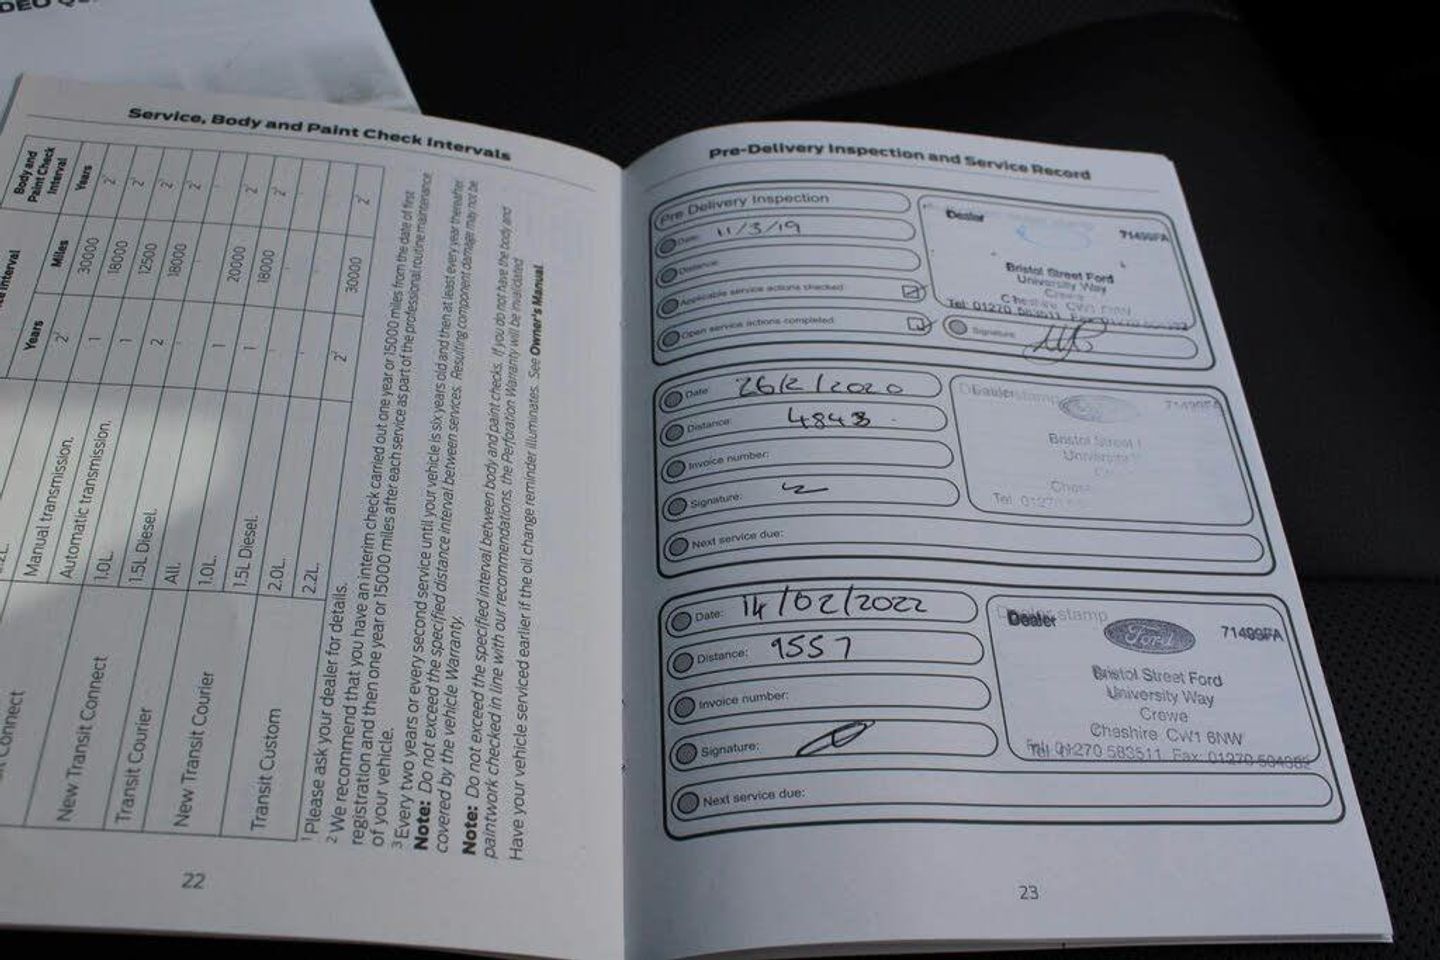 Service, Body and Paint Check Intervals
Body and
Paint Check
Interval
Interval
Years
Miles
Years
Manual transmission.
2¹
30000
2²
Automatic transmission.
1
18000
2²
1.0L.
1
12500
2²
1.5L Diesel.
2
18000
2²
All.
-
-
-
1.0L.
1
20000
2²
1.5L Diesel.
1
18000
2²
2.0L.
-
-
-
2.2L.
2¹
30000
2²
Connect
New Transit Connect
Transit Courier
New Transit Courier
Transit Custom
¹ Please ask your dealer for details.
² We recommend that you have an interim check carried out one year or 15000 miles from the date of first
registration and then one year or 15000 miles after each service as part of the professional routine maintenance
of your vehicle.
³ Every two years or every second service until your vehicle is six years old and then at least every year thereafter.
Note: Do not exceed the specified distance interval between services. Resulting component damage may not be
covered by the vehicle Warranty.
Note: Do not exceed the specified interval between body and paint checks. If you do not have the body and
paintwork checked in line with our recommendations, the Perforation Warranty will be invalidated
Have your vehicle serviced earlier if the oil change reminder illuminates. See Owner's Manual.
22
Pre-Delivery Inspection and Service Record
Pre Delivery Inspection
Date: 11/3/19
Distance:
Applicable service actions checked
Open service actions completed
Dealer
71499FA
Bristol Street Ford
University Way
Crewe
Cheshire CW1 6NW
Tel: 01270 583511 Fax:
Signature:
Date: 26/2/2020
Distance: 4843
Invoice number:
Signature:
Next service due:
Dealer stamp
71499FA
Ford
Bristol Street
University
Tel: 01270
Date: 14/02/2022
Distance: 9557
Invoice number:
Signature:
Next service due:
Dealer stamp
Dealer
Ford
71499FA
Bristol Street Ford
University Way
Crewe
Cheshire CW1 6NW
Tel: 01270 583511 Fax: 01270 504362
23